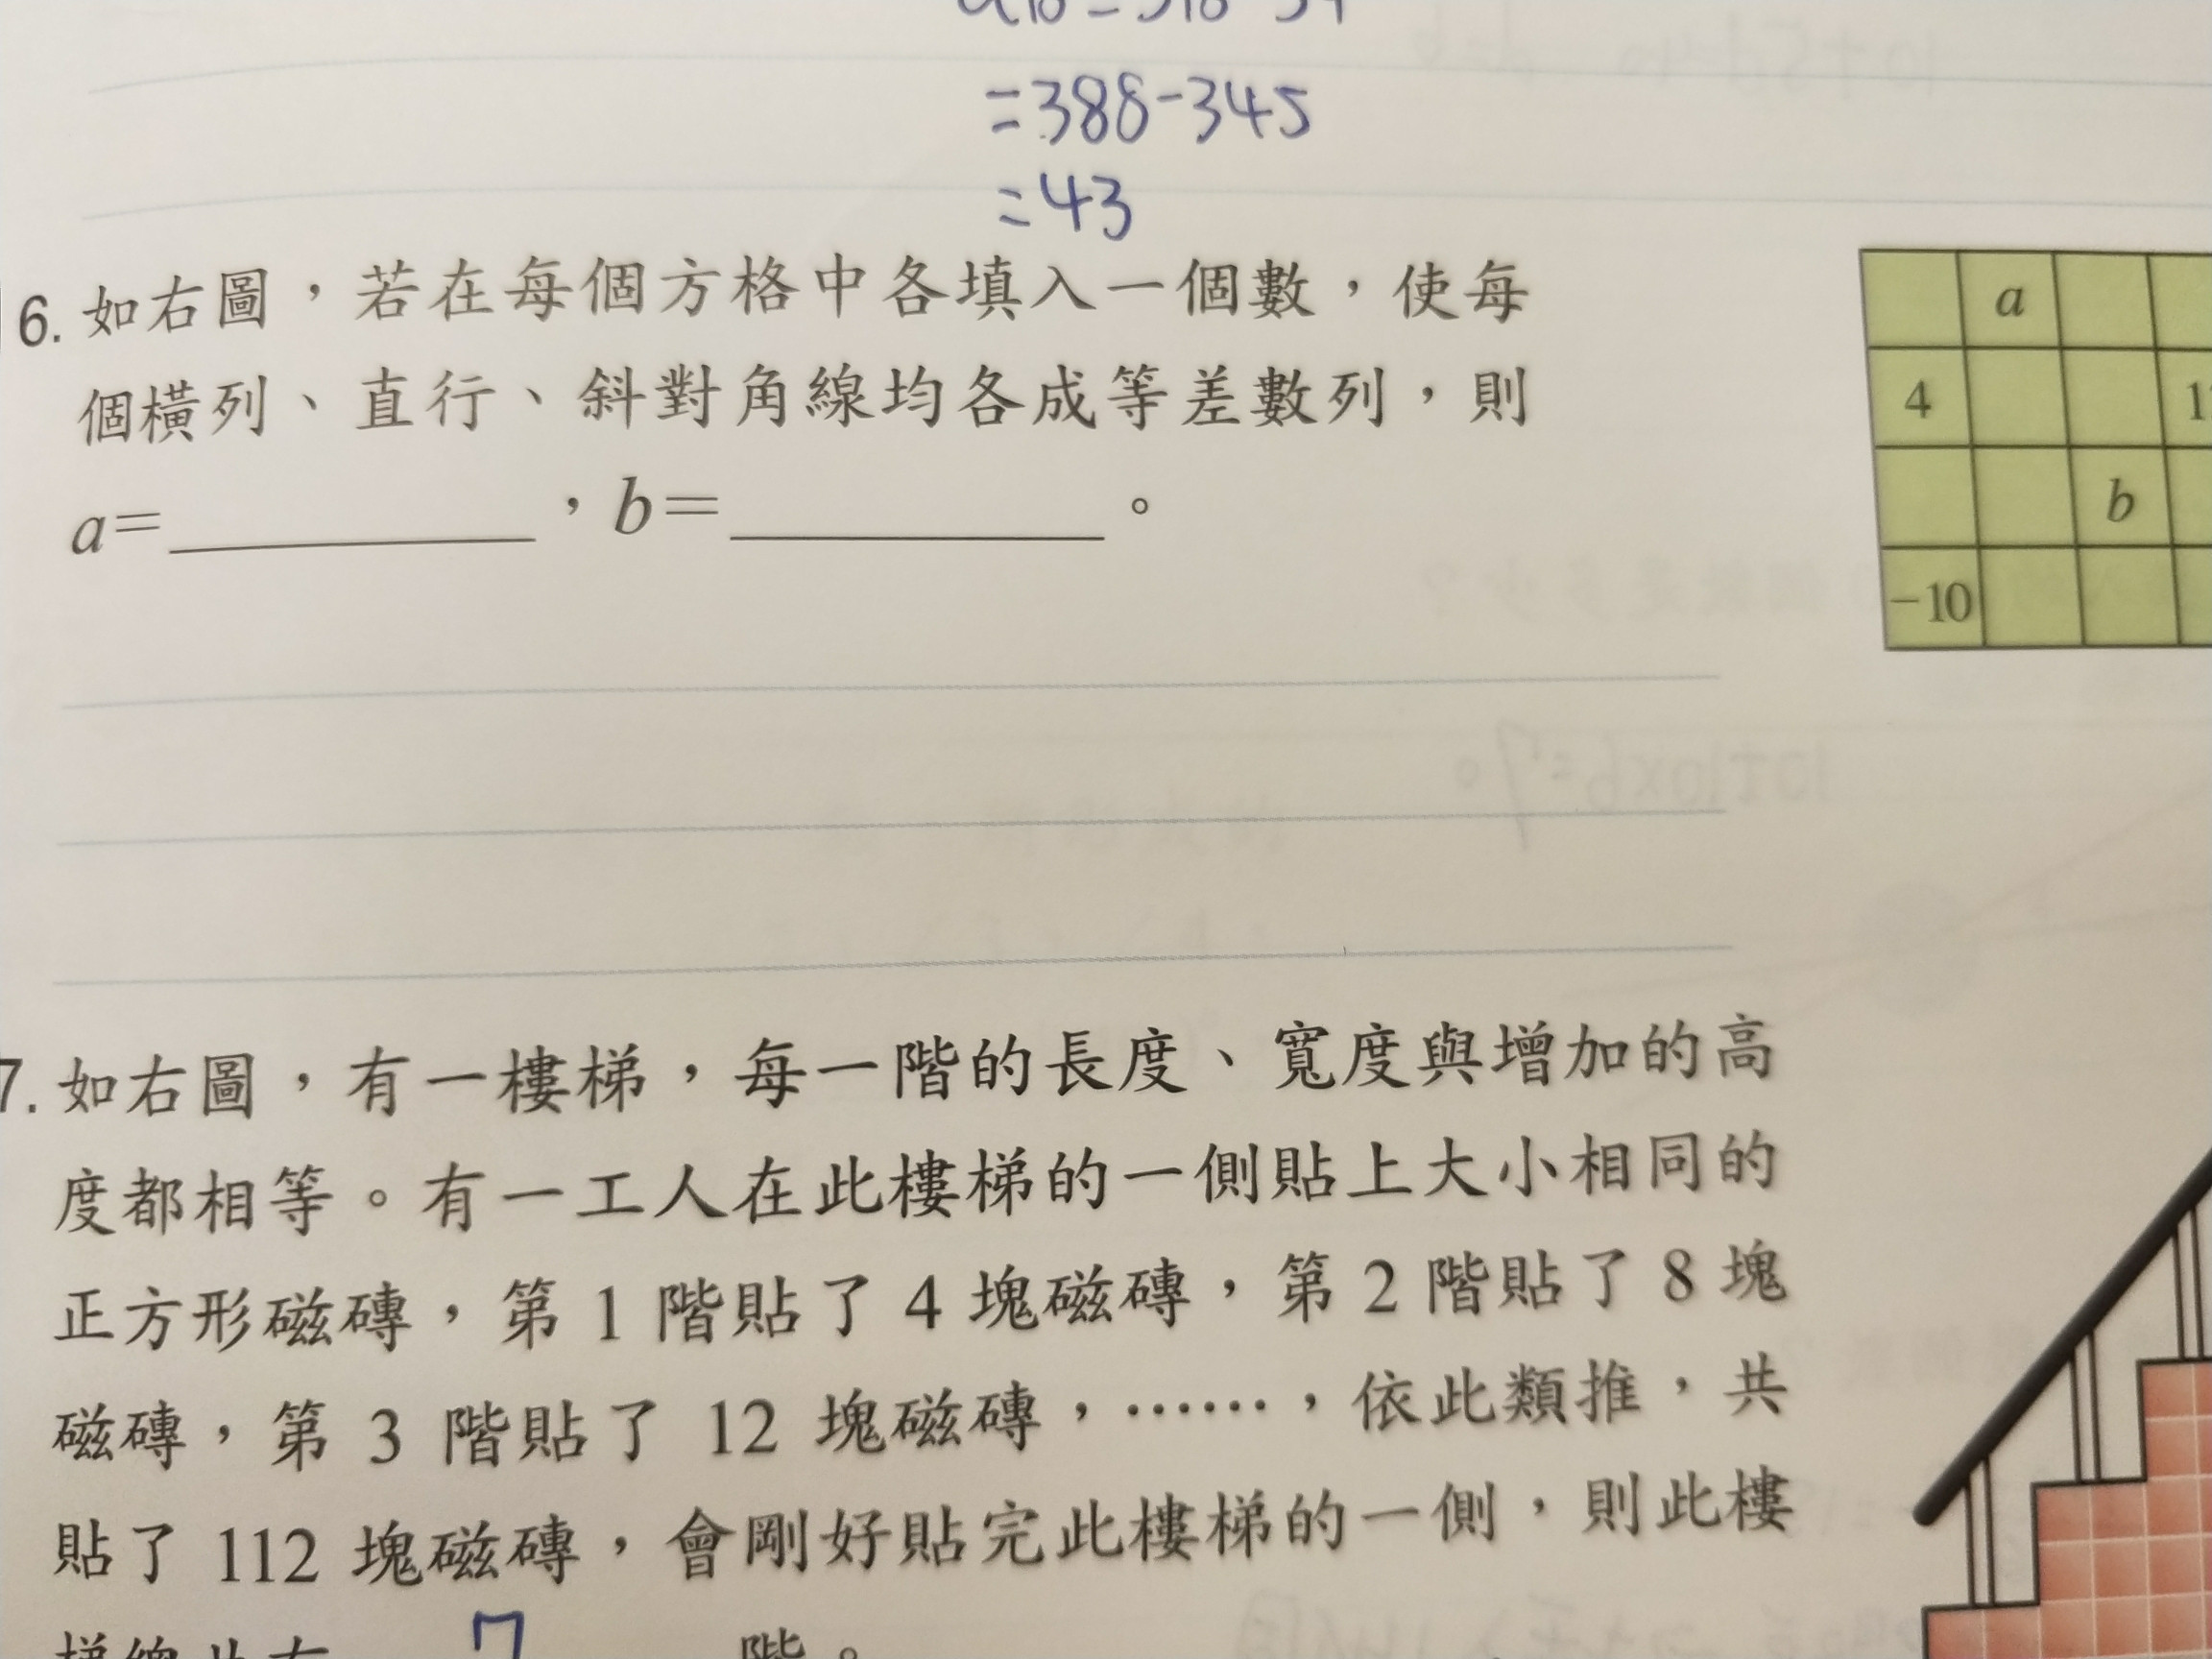 =388-345
=43
6. 如右圖，若在每個方格中各填入一個數，使每
個橫列、直行、斜對角線均各成等差數列，則
a=＿＿＿＿，b=＿＿＿＿。
a
4
b
-10
7. 如右圖，有一樓梯，每一階的長度、寬度與增加的高
度都相等。有一工人在此樓梯的一側貼上大小相同的
正方形磁磚，第 1 階貼了 4 塊磁磚，第 2 階貼了 8 塊
磁磚，第 3 階貼了 12 塊磁磚，……，依此類推，共
貼了 112 塊磁磚，會剛好貼完此樓梯的一側，則此樓
梯總共有 7 階。